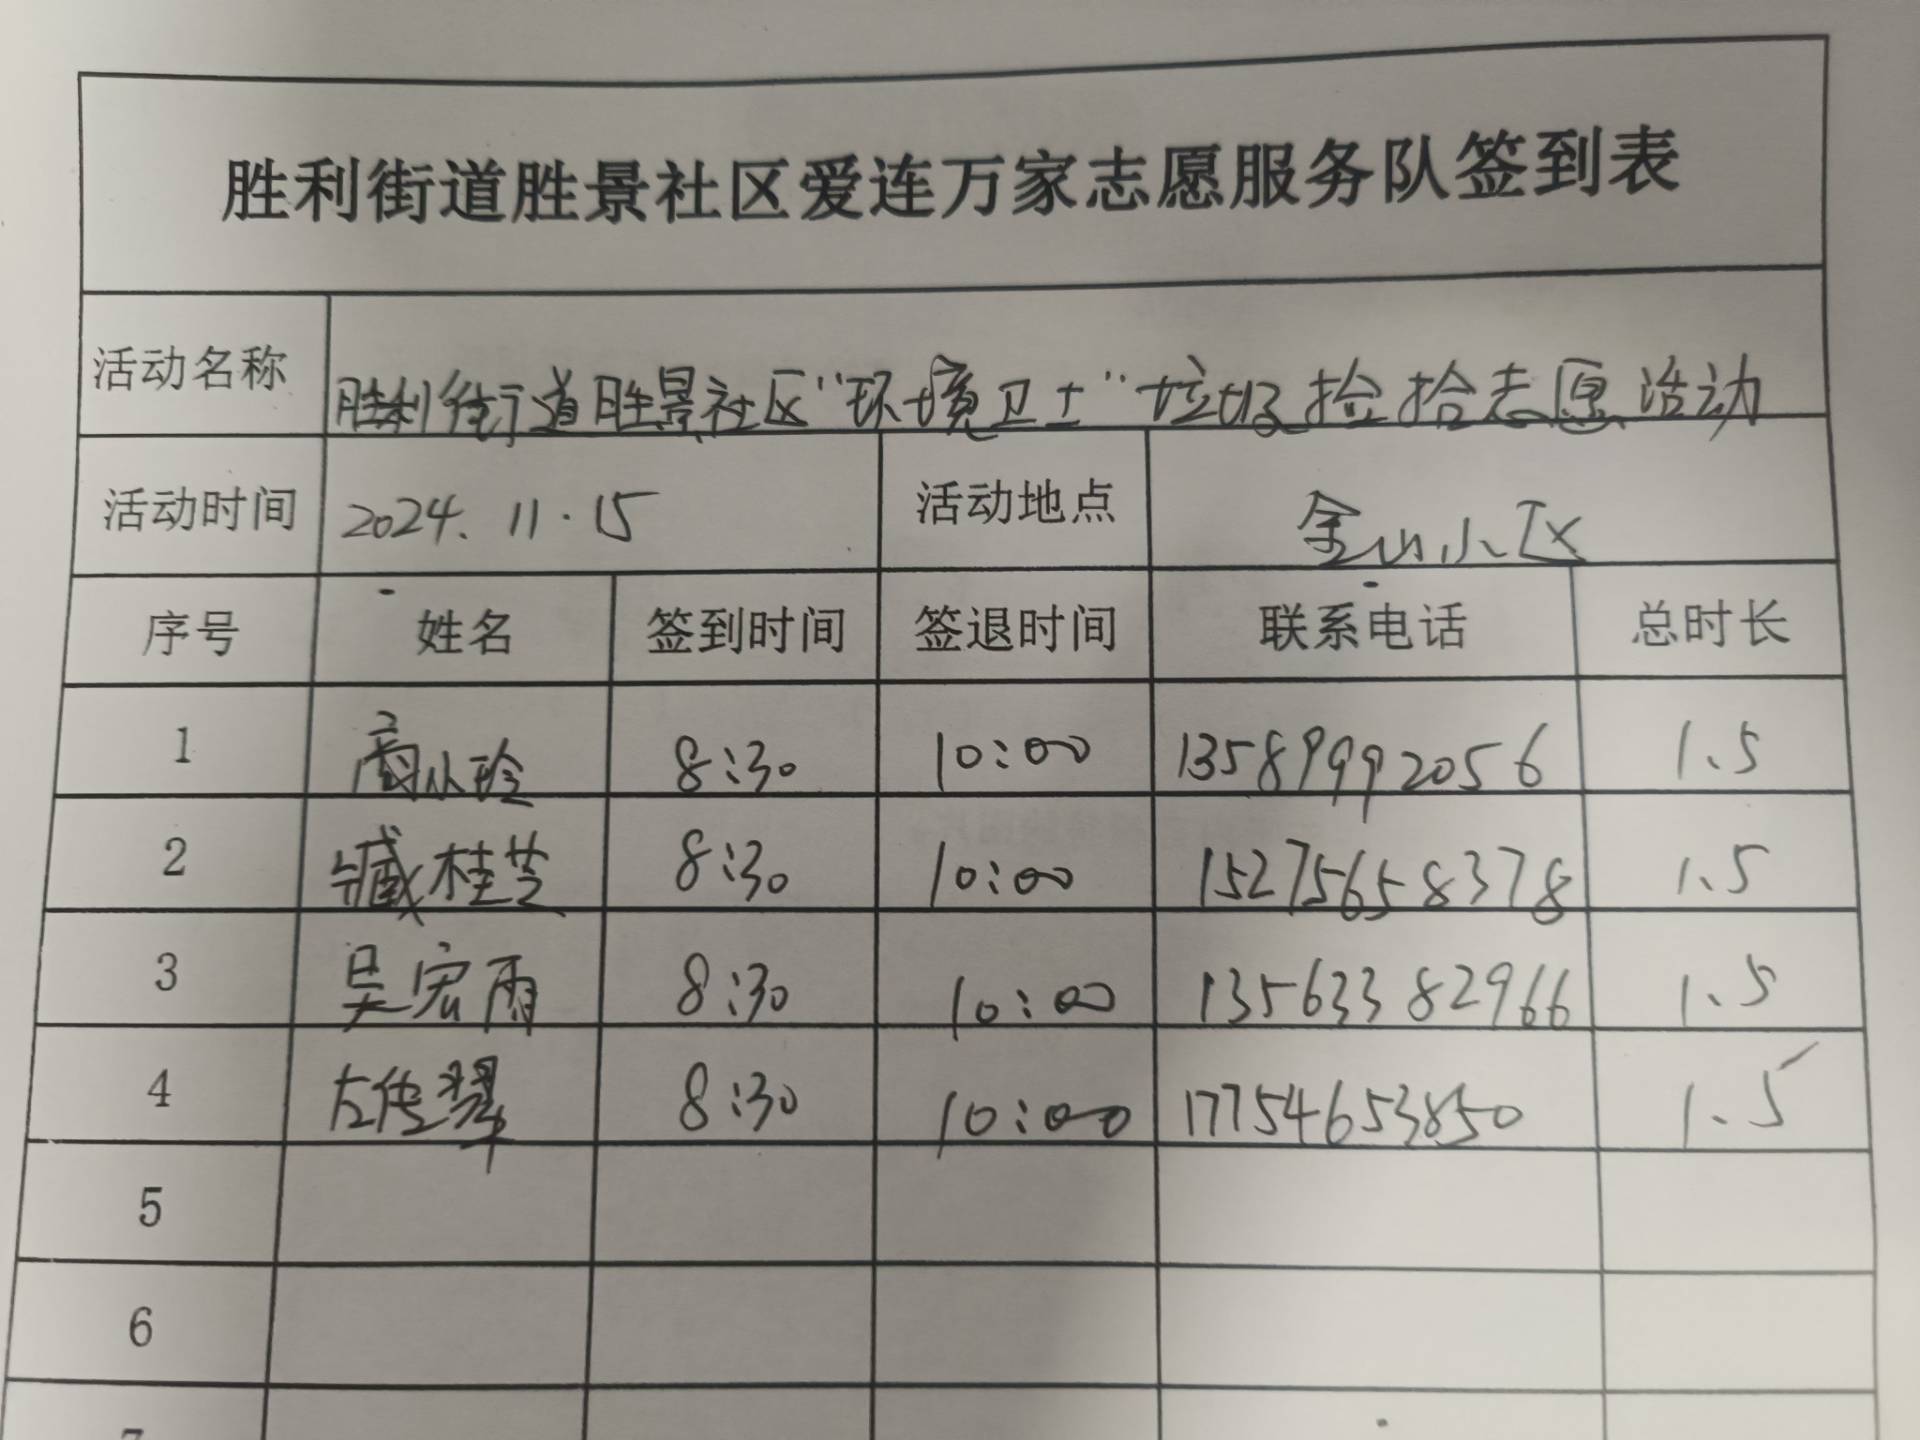 胜利街道胜景社区爱连万家志愿服务队签到表
活动名称 胜利街道胜景社区“环境卫士”垃圾捡拾志愿活动
活动时间 2024.11.15 活动地点 金山小区
序号 姓名 签到时间 签退时间 联系电话 总时长
1 商小玲 8:30 10:00 13589992056 1.5
2 臧桂芝 8:30 10:00 15275658378 1.5
3 吴宏雨 8:30 10:00 13563382966 1.5
4 左传翠 8:30 10:00 17754653850 1.5
5
6
7